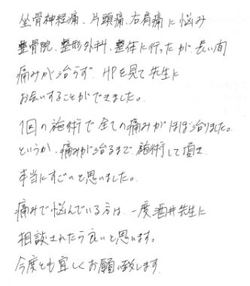 坐骨神経痛、片頭痛、右肩痛に悩み
整骨院、整形外科、整体に行ったが長い間
痛みが治らず、HPを見て先生に
お会いすることができました。
1回の施術で全ての痛みがほぼ治りました。
というか、痛みが治るまで施術して頂き
本当にすごいと思いました。
痛みで悩んでいる方は、一度酒井先生に
相談されたら良いと思います。
今度とも宜しくお願い致します